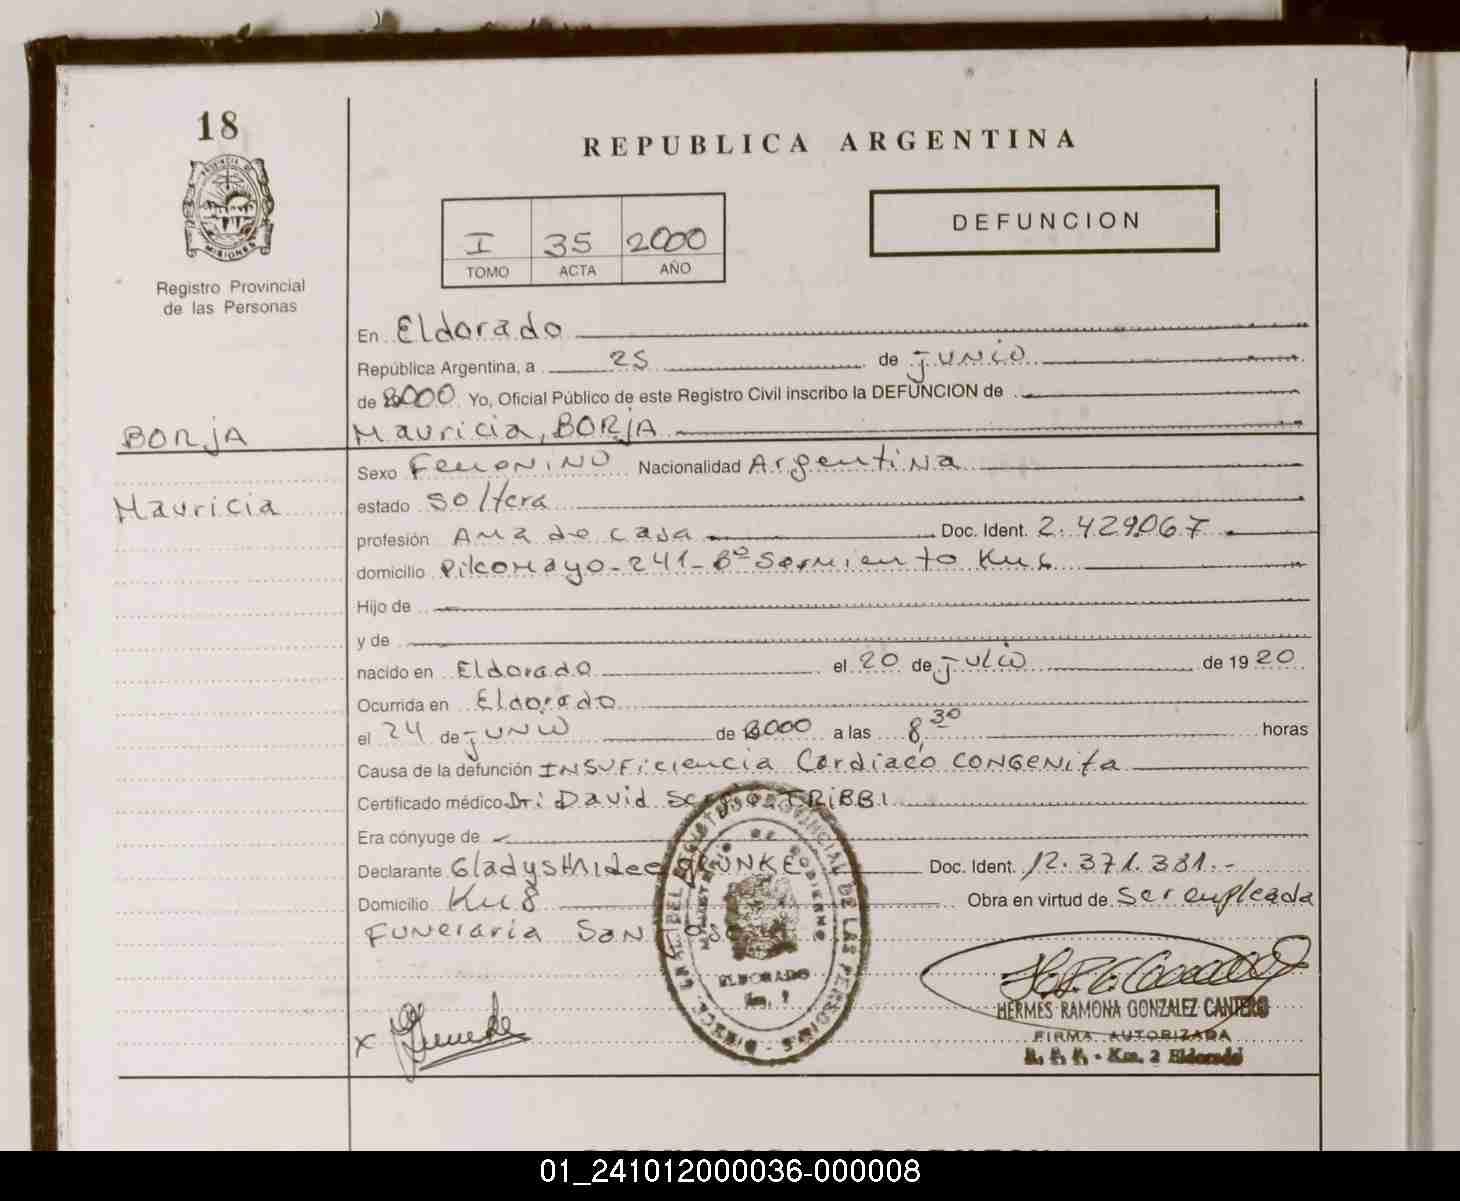 18
REPUBLICA ARGENTINA
PROVINCIA DE
MISIONES
Registro Provincial
de las Personas
I 35 2000
TOMO ACTA AÑO
DEFUNCION
En Eldorado
República Argentina, a 25 de junio
de 2000 Yo, Oficial Público de este Registro Civil inscribo la DEFUNCION de
BORJA Mauricia, BORJA
Sexo Femenino Nacionalidad Argentina
Mauricia
estado soltera
profesión Ama de casa Doc. Ident. 2.429.067
domicilio Pilcomayo - 241 - Bº Sarmiento Km
Hijo de
y de
nacido en Eldorado el 20 de julio de 1920
Ocurrida en Eldorado
el 24 de junio de 2000 a las 8,30 horas
Causa de la defunción INSUFiciencia Cardiaco CONGENita
Certificado médico Dr: David TRiBBI
Era cónyuge de
Declarante Gladys HAidee GRUNKE Doc. Ident. 12.371.381.-
Domicilio Km 8 Obra en virtud de Ser empleada
FUNeraria SAN JOSE
MINISTERIO DE GOBIERNO
ELDORADO
HERMES RAMONA GONZALEZ CANTERO
FIRMA AUTORIZADA
R. P. P. - Km. 2 Eldorado
x
01_241012000036-000008